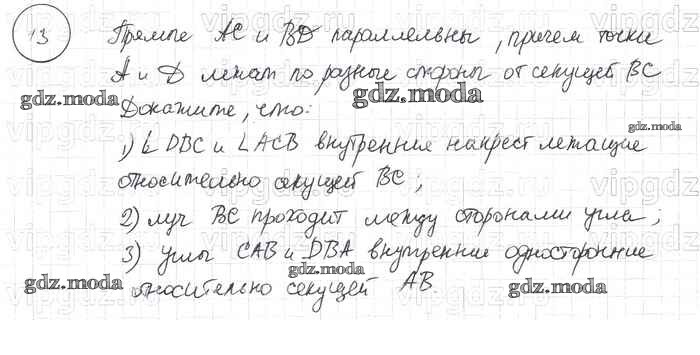 13
Прямые AC и BD параллельны, причем точки
A и D лежат по разные стороны от секущей BC
Докажите, что:
1) ∠ DBC и ∠ ACB внутренние накрест лежащие
относительно секущей BC;
2) луч BC проходит между сторонами угла;
3) углы CAB и DBA внутренние односторонние
относительно секущей AB.
gdz.moda
gdz.moda
gdz.moda
gdz.moda
gdz.moda
gdz.moda
vipgdz